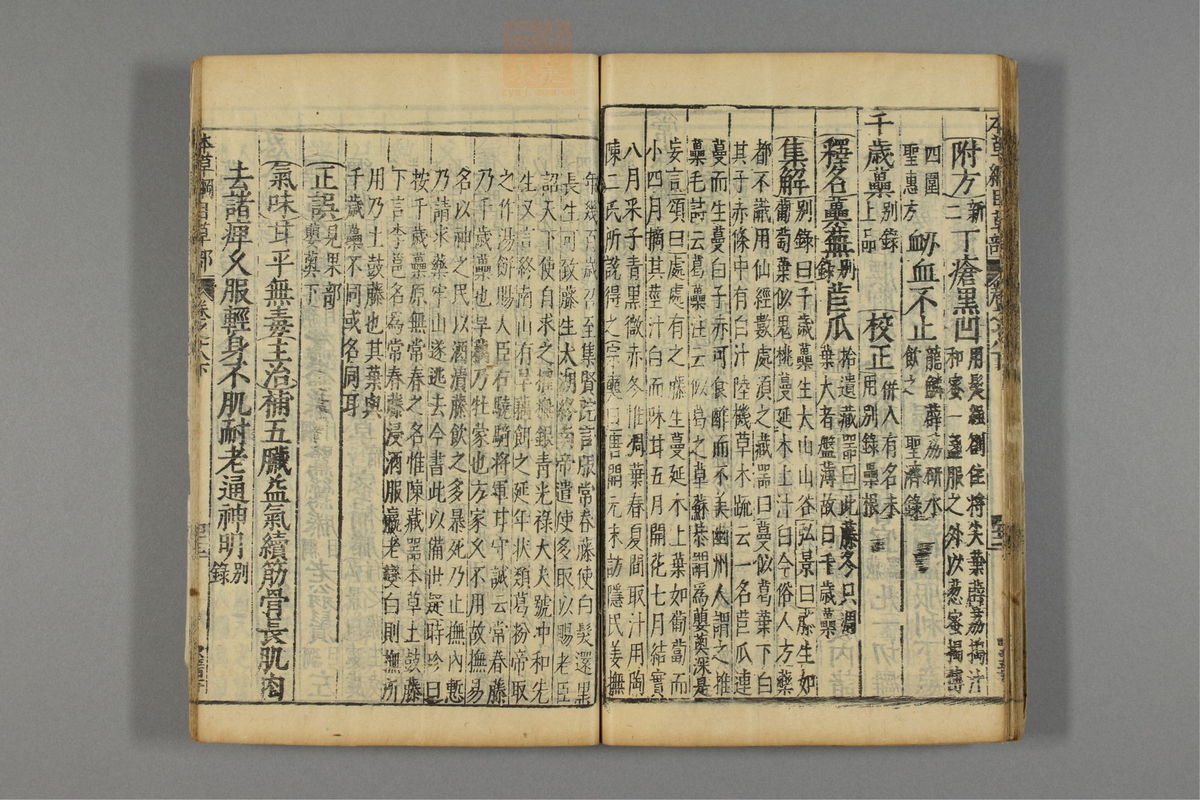 本草綱目草部　卷之十八下
附方新二丁瘡黑凹用髮繩劄住將尖葉薜荔擣汁
和蜜一盞服之外以葱蜜擣傅
四圍
聖惠方
衂血不止龍鱗薜荔研水
飲之　聖濟錄
千歲蘽別錄
上品
校正併入有名未
用別錄蘽根
釋名蘽蕪別錄苣瓜拾遺藏器曰此藤冬只凋
葉大者盤薄故曰千歲蘽
集解別錄曰千歲蘽生太山山谷弘景曰藤生如
葡萄葉似鬼桃蔓延木上汁白今俗人方藥
都不識用仙經數處須之藏器曰蔓似葛葉下白
其子赤條中有白汁陸機草木疏云一名苣瓜連
蔓而生蔓白子赤可食酢而不美幽州人謂之推
蘽毛詩云葛蘽注云似葛之草蘇恭謂爲蘡薁深是
妄言頌曰處處有之藤生蔓延木上葉如葡萄而
小四月摘其莖汁白而味甘五月開花七月結實
八月采子青黑微赤冬惟凋葉春夏間取汁用陶
陳二氏所說得之宗奭曰唐開元末訪隱民姜撫
年幾百歲召至集賢院言服常春藤使白髮還黑
長生可致藤生太湖終南帝遣使多取以賜老臣
詔天下使自求之擢撫銀青光祿大夫號冲和先
生又言終南山有旱藕餌之延年狀類葛粉帝取
之作湯餅賜人臣右驍騎將軍甘守誠云常春藤
乃千歲蘽也旱藕乃牡蒙也方家久不用故撫易
名以神之民以酒漬藤飲之多暴死乃止撫內慙
乃請求藥牢山遂逃去今書此以備世疑時珍曰
按千歲蘽原無常春之名惟陳藏器本草土鼓藤
下言李邕名爲常春藤浸酒服羸老變白則撫所
用乃土鼓藤也其葉與
千歲蘽不同或名同耳
正誤見果部
蘡薁下
氣味甘平無毒主治補五臟益氣續筋骨長肌肉
去諸痺久服輕身不肌耐老通神明別錄
本草綱目草部　卷之十八下